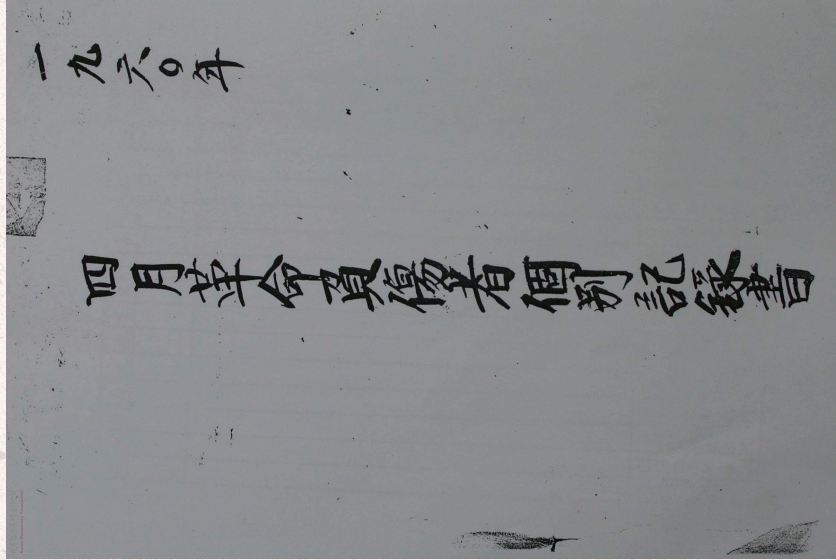 一九六〇年
四月革命負傷者個別記錄書